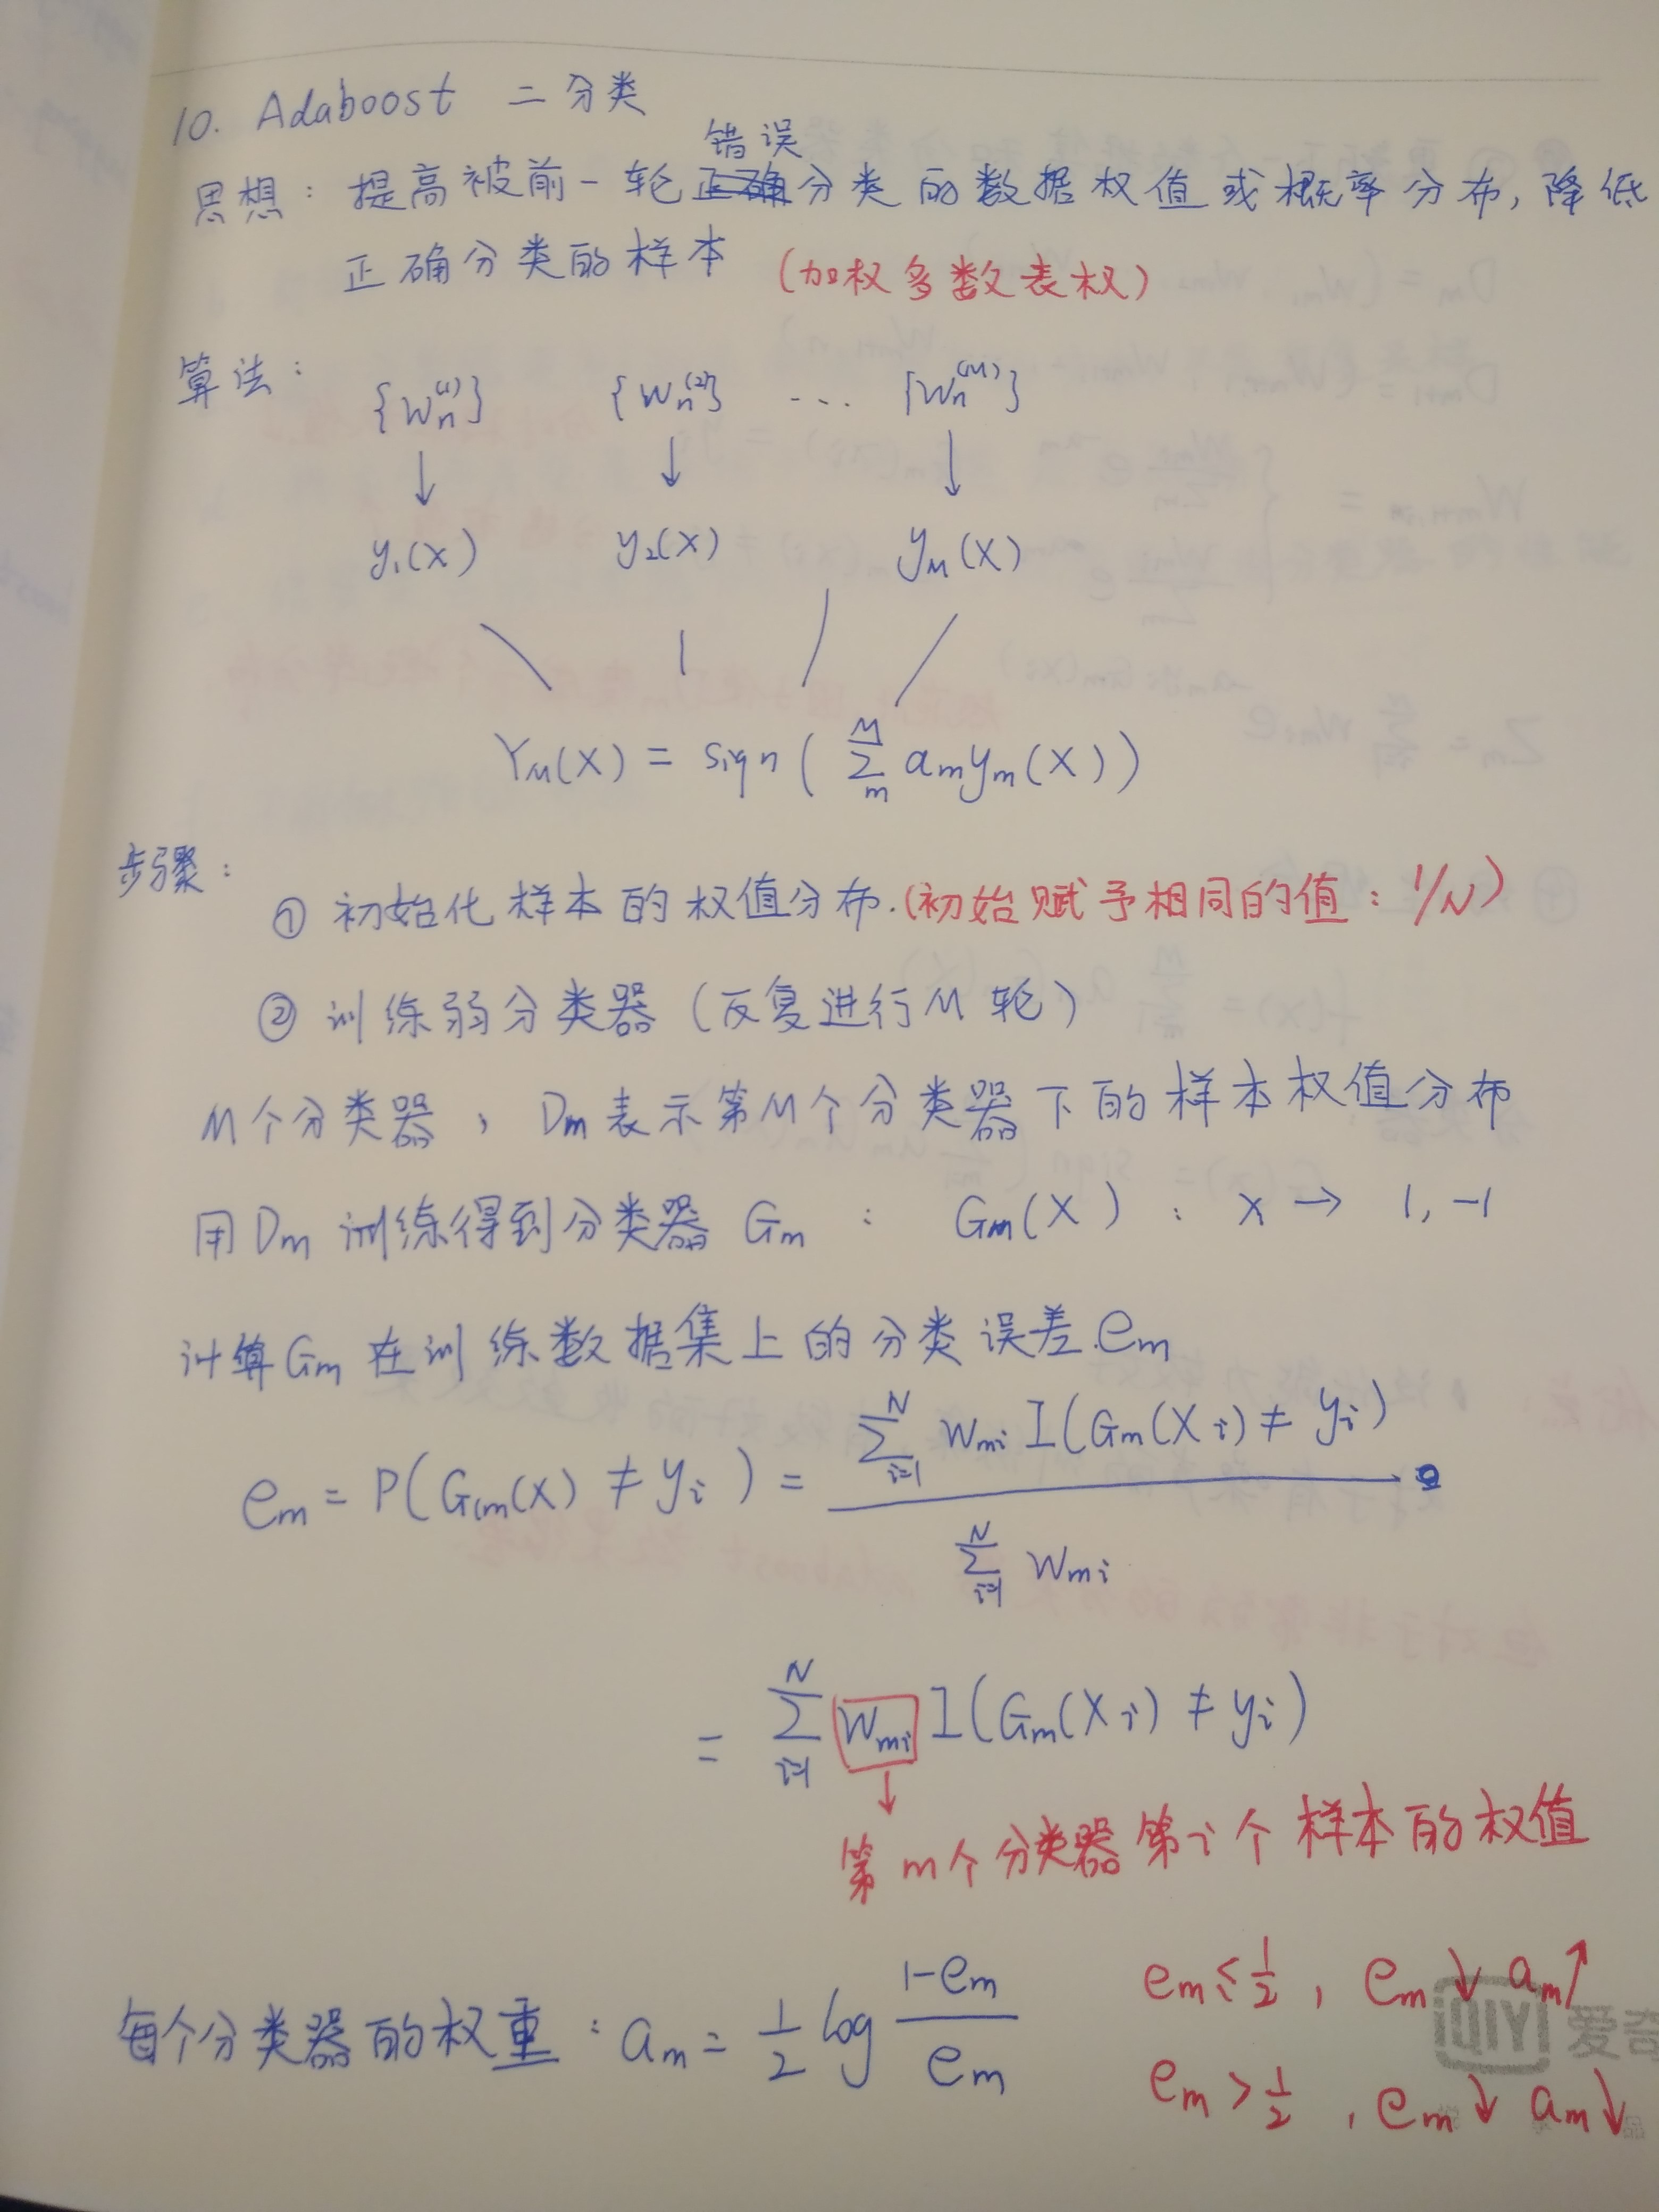 10. Adaboost 二分类
错误
思想：提高被前一轮正确分类的数据权值或概率分布, 降低
正确分类的样本 (加权多数表权)
算法：
{Wn^(1)} {Wn^(2)} ... {Wn^(M)}
↓ ↓ ↓
y₁(X) y₂(X) y_M(X)
Y_M(X) = sign ( Σ_m^M a_m y_m(X) )
步骤：
① 初始化样本的权值分布. (初始赋予相同的值：1/N)
② 训练弱分类器 (反复进行M轮)
M个分类器, Dm表示第M个分类器下的样本权值分布
用Dm训练得到分类器 Gm : Gm(X) : x → 1, -1
计算Gm在训练数据集上的分类误差.em
em = P(Gm(X) ≠ yi) = Σ_{i=1}^N Wmi I(Gm(Xi) ≠ yi) / Σ_{i=1}^N Wmi
= Σ_{i=1}^N Wmi I(Gm(Xi) ≠ yi)
↓
第m个分类器第i个样本的权值
每个分类器的权重：am = 1/2 log (1-em)/em
em ≤ 1/2, em↓ am↑
em > 1/2, em↓ am↓
iQIYI 爱奇
品